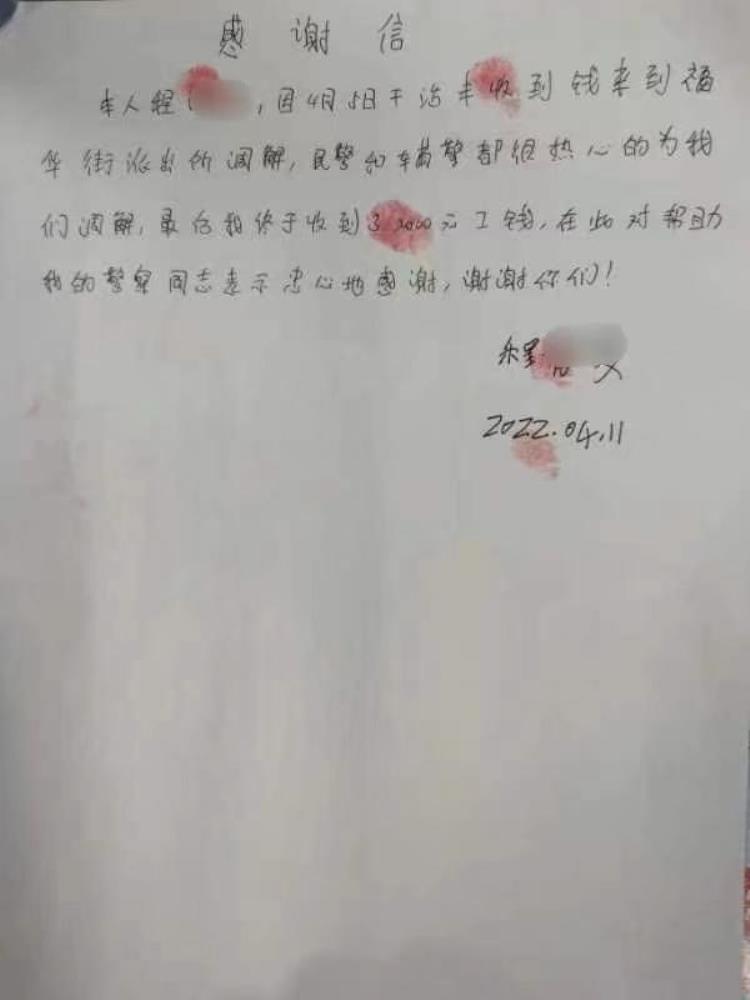 感谢信
本人程，因4月5日干活未收到钱来到福
华街派出所调解，民警和辅警都很热心的为我
们调解，最后我终于收到32000元工钱，在此对帮助
我的警察同志表示忠心地感谢，谢谢你们！
2022.04.11